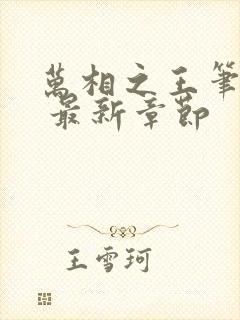 萬相之王筆
最新章節
王雪珂